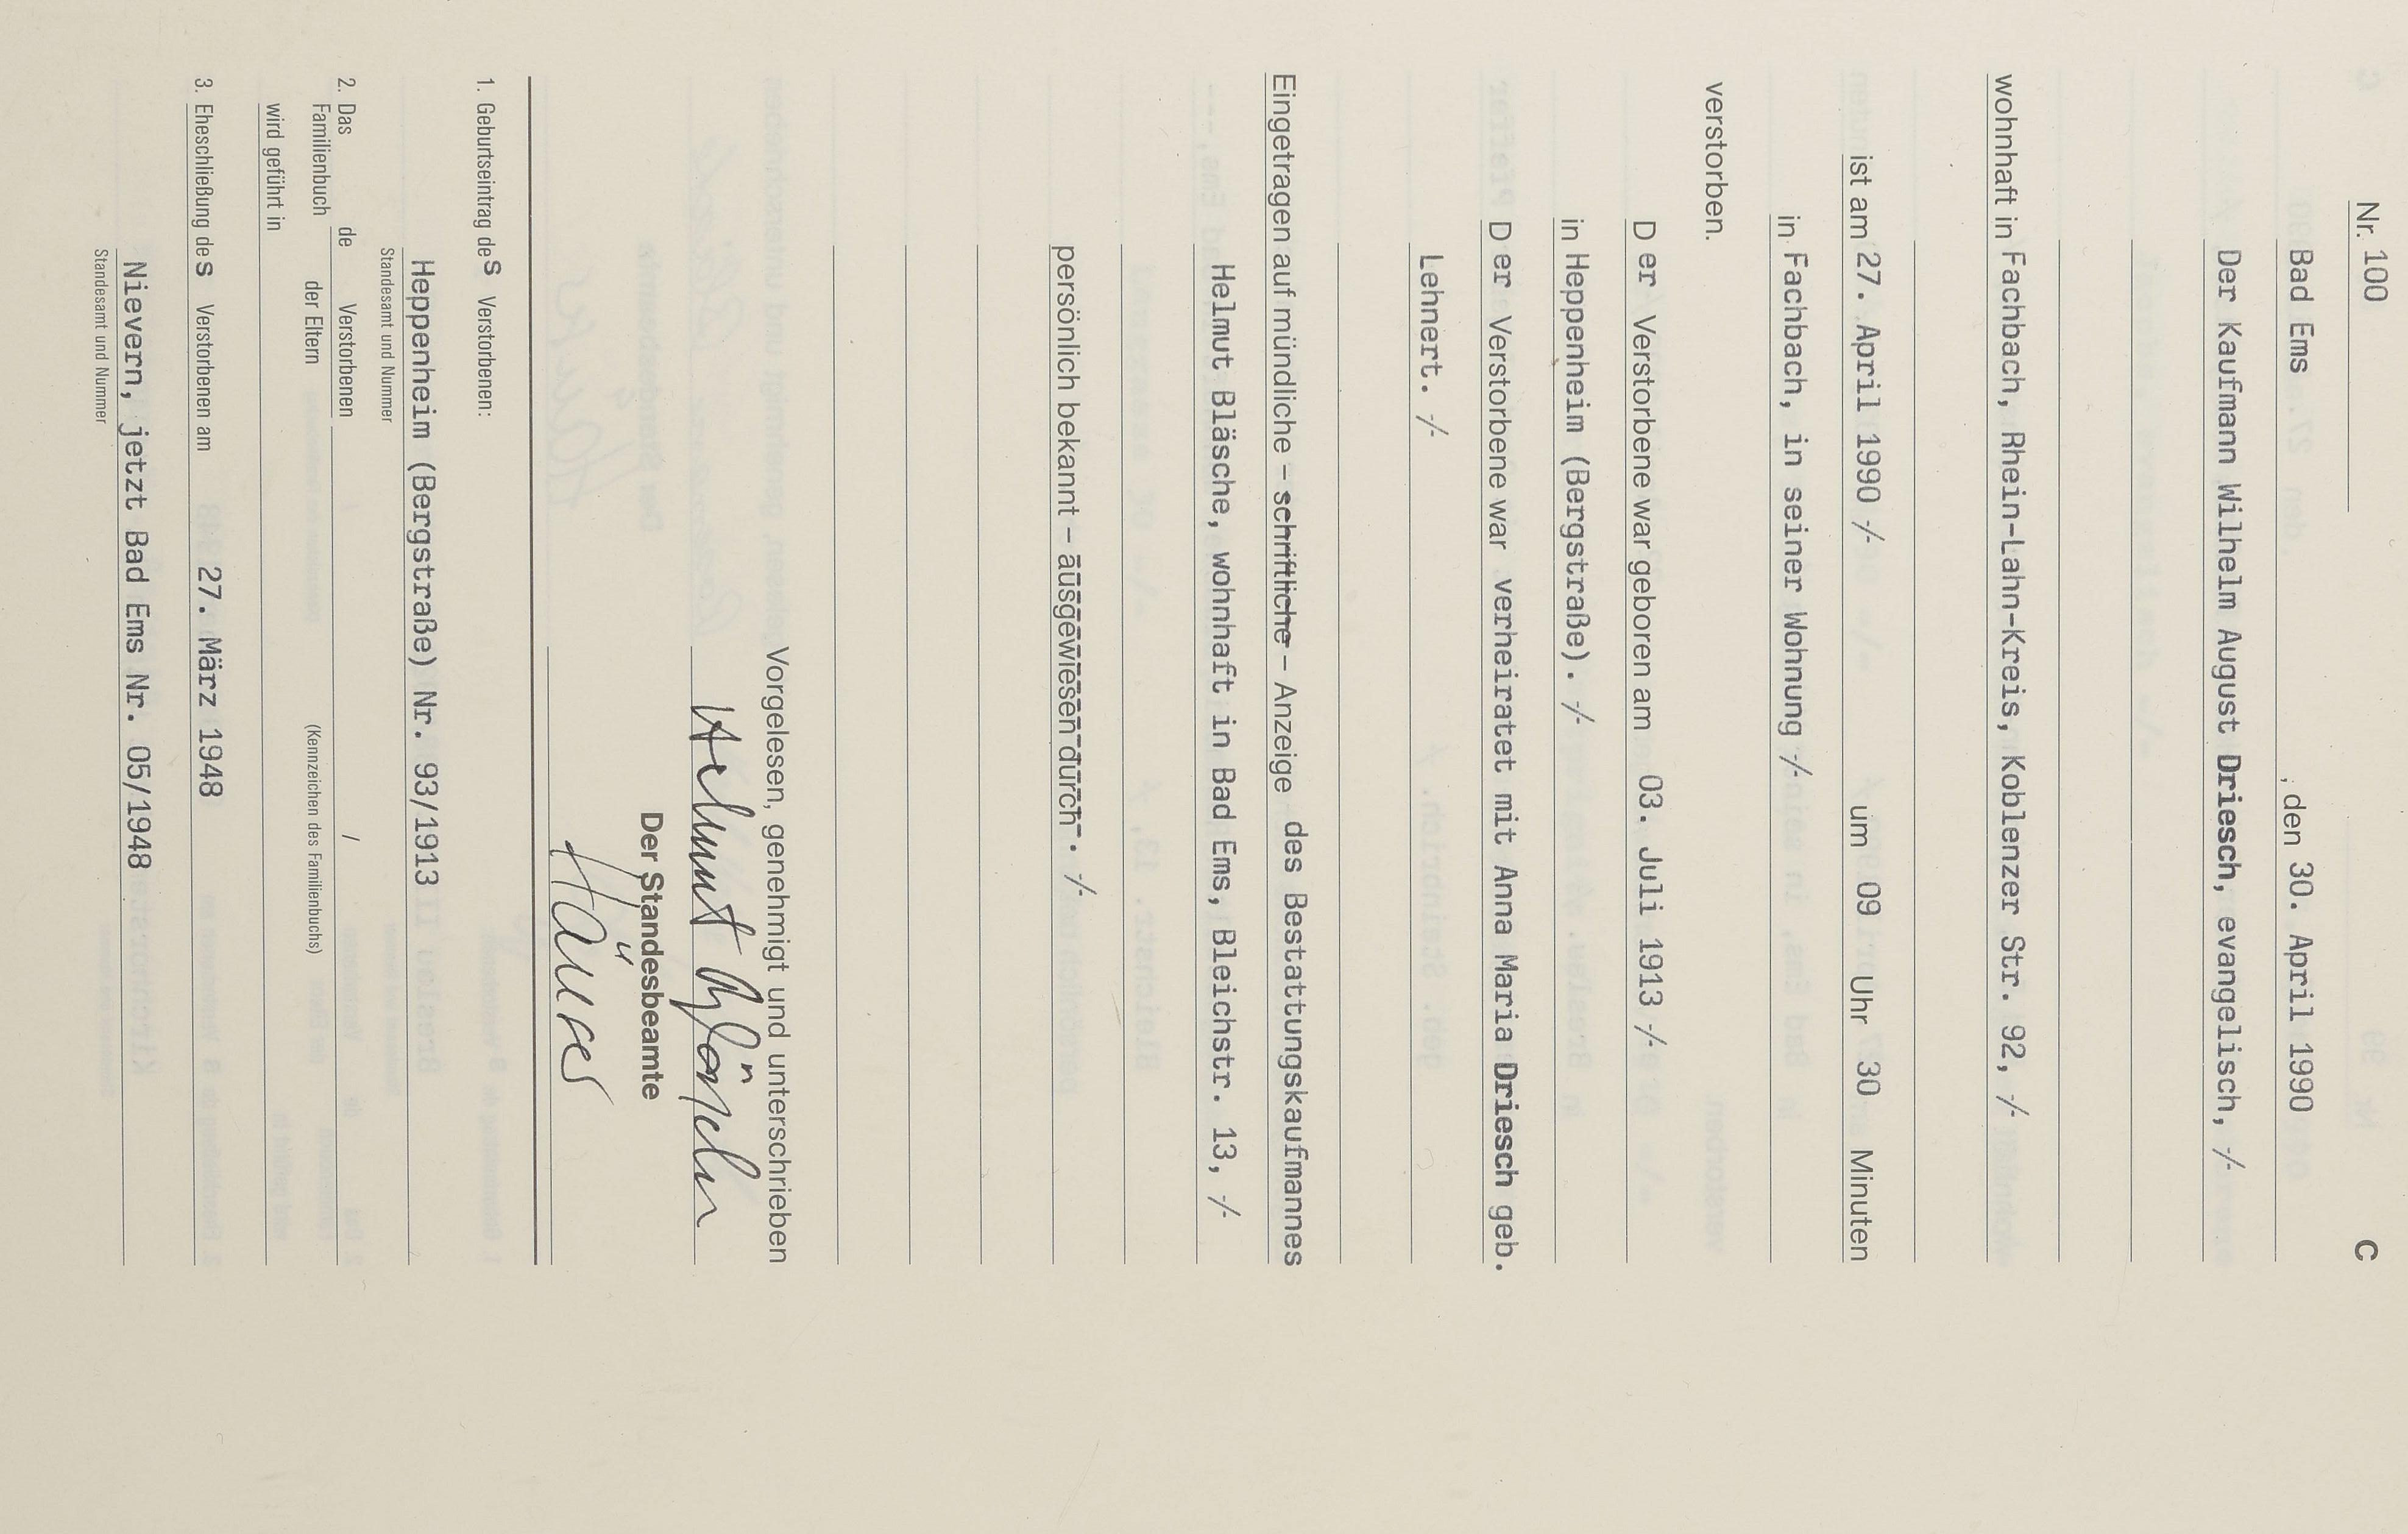 Nr. 100 C
Bad Ems , den 30. April 1990
Der Kaufmann Wilhelm August Driesch, evangelisch, -/-
wohnhaft in Fachbach, Rhein-Lahn-Kreis, Koblenzer Str. 92, -/-
ist am 27. April 1990 -/- um 09 Uhr 30 Minuten
in Fachbach, in seiner Wohnung -/-
verstorben.
D er Verstorbene war geboren am 03. Juli 1913 -/-
in Heppenheim (Bergstraße). -/-
D er Verstorbene war verheiratet mit Anna Maria Driesch geb.
Lehnert. -/-
Eingetragen auf mündliche – schriftliche – Anzeige des Bestattungskaufmannes
Helmut Bläsche, wohnhaft in Bad Ems, Bleichstr. 13, -/-
persönlich bekannt – ausgewiesen durch . -/-
Vorgelesen, genehmigt und unterschrieben
Helmut Bläsche
Der Standesbeamte
Häuser
1. Geburtseintrag des Verstorbenen:
Heppenheim (Bergstraße) Nr. 93/1913
Standesamt und Nummer
2. Das Familienbuch de Verstorbenen /
der Eltern (Kennzeichen des Familienbuchs)
wird geführt in
3. Eheschließung des Verstorbenen am 27. März 1948
Nievern, jetzt Bad Ems Nr. 05/1948
Standesamt und Nummer